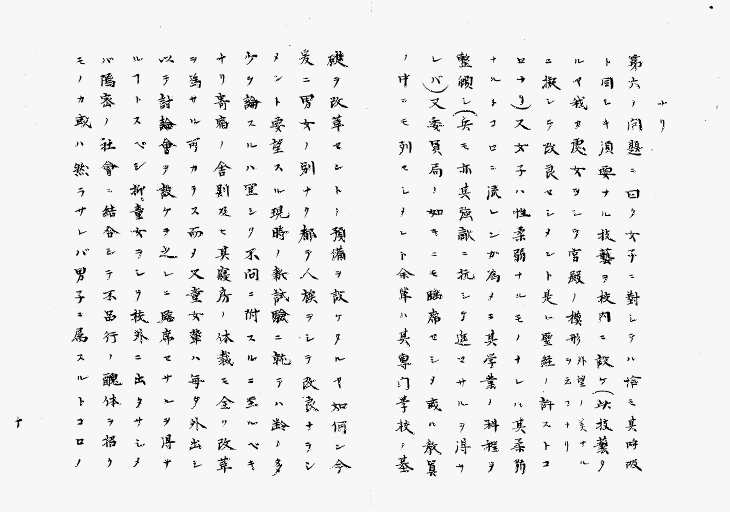 ナリ
第六ノ問題ニ曰ク女子ニ對シテハ恰モ其呼吸
ト同シキ須要ナル技藝ヲ校内ニ設ケ(此技藝タ
ルヤ我カ處女ヲシテ宮殿ノ模形外望ノ美ナルヲ云フナリ
ニ擬シテ改良セシメント是レ聖經ノ許ストコ
ロナリ)又女子ハ性柔弱ナルモノナレハ其柔弱
ナルトコロニ流レンカ爲メニ其学業ノ科程ヲ
整頓シ(兵モ亦其強敵ニ抗シテ進マサルヲ得サ
レバ)又委員局ノ如キニモ臨席セシメ或ハ教員
ノ中ニモ列セシメント余輩ハ其専门学校ノ基
礎ヲ改革セントノ預備ヲ設ケタルヤ如何ン今
爰ニ男女ノ別ナク都テ人族ヲシテ改良ナラシ
メント要望スル現時ノ新試驗ニ就テハ齢ノ多
少ヲ論スルハ宜シク不問ニ附スルニ至ルベキ
ナリ寄宿ノ舎則及ヒ其寢房ノ体裁モ全ク改革
ヲ爲サル可カラス而メ又童女輩ハ毎夕外出シ
以テ討論會ヲ設ケ之レニ臨席セサルヲ得サ
ルコトスベシ抑童女ヲシテ校外ニ出タサシメ
バ隱密ノ社會ニ結合シテ不品行ノ醜体ヲ招ク
モノカ或ハ然ラサレバ男子ニ属スルトコロノ